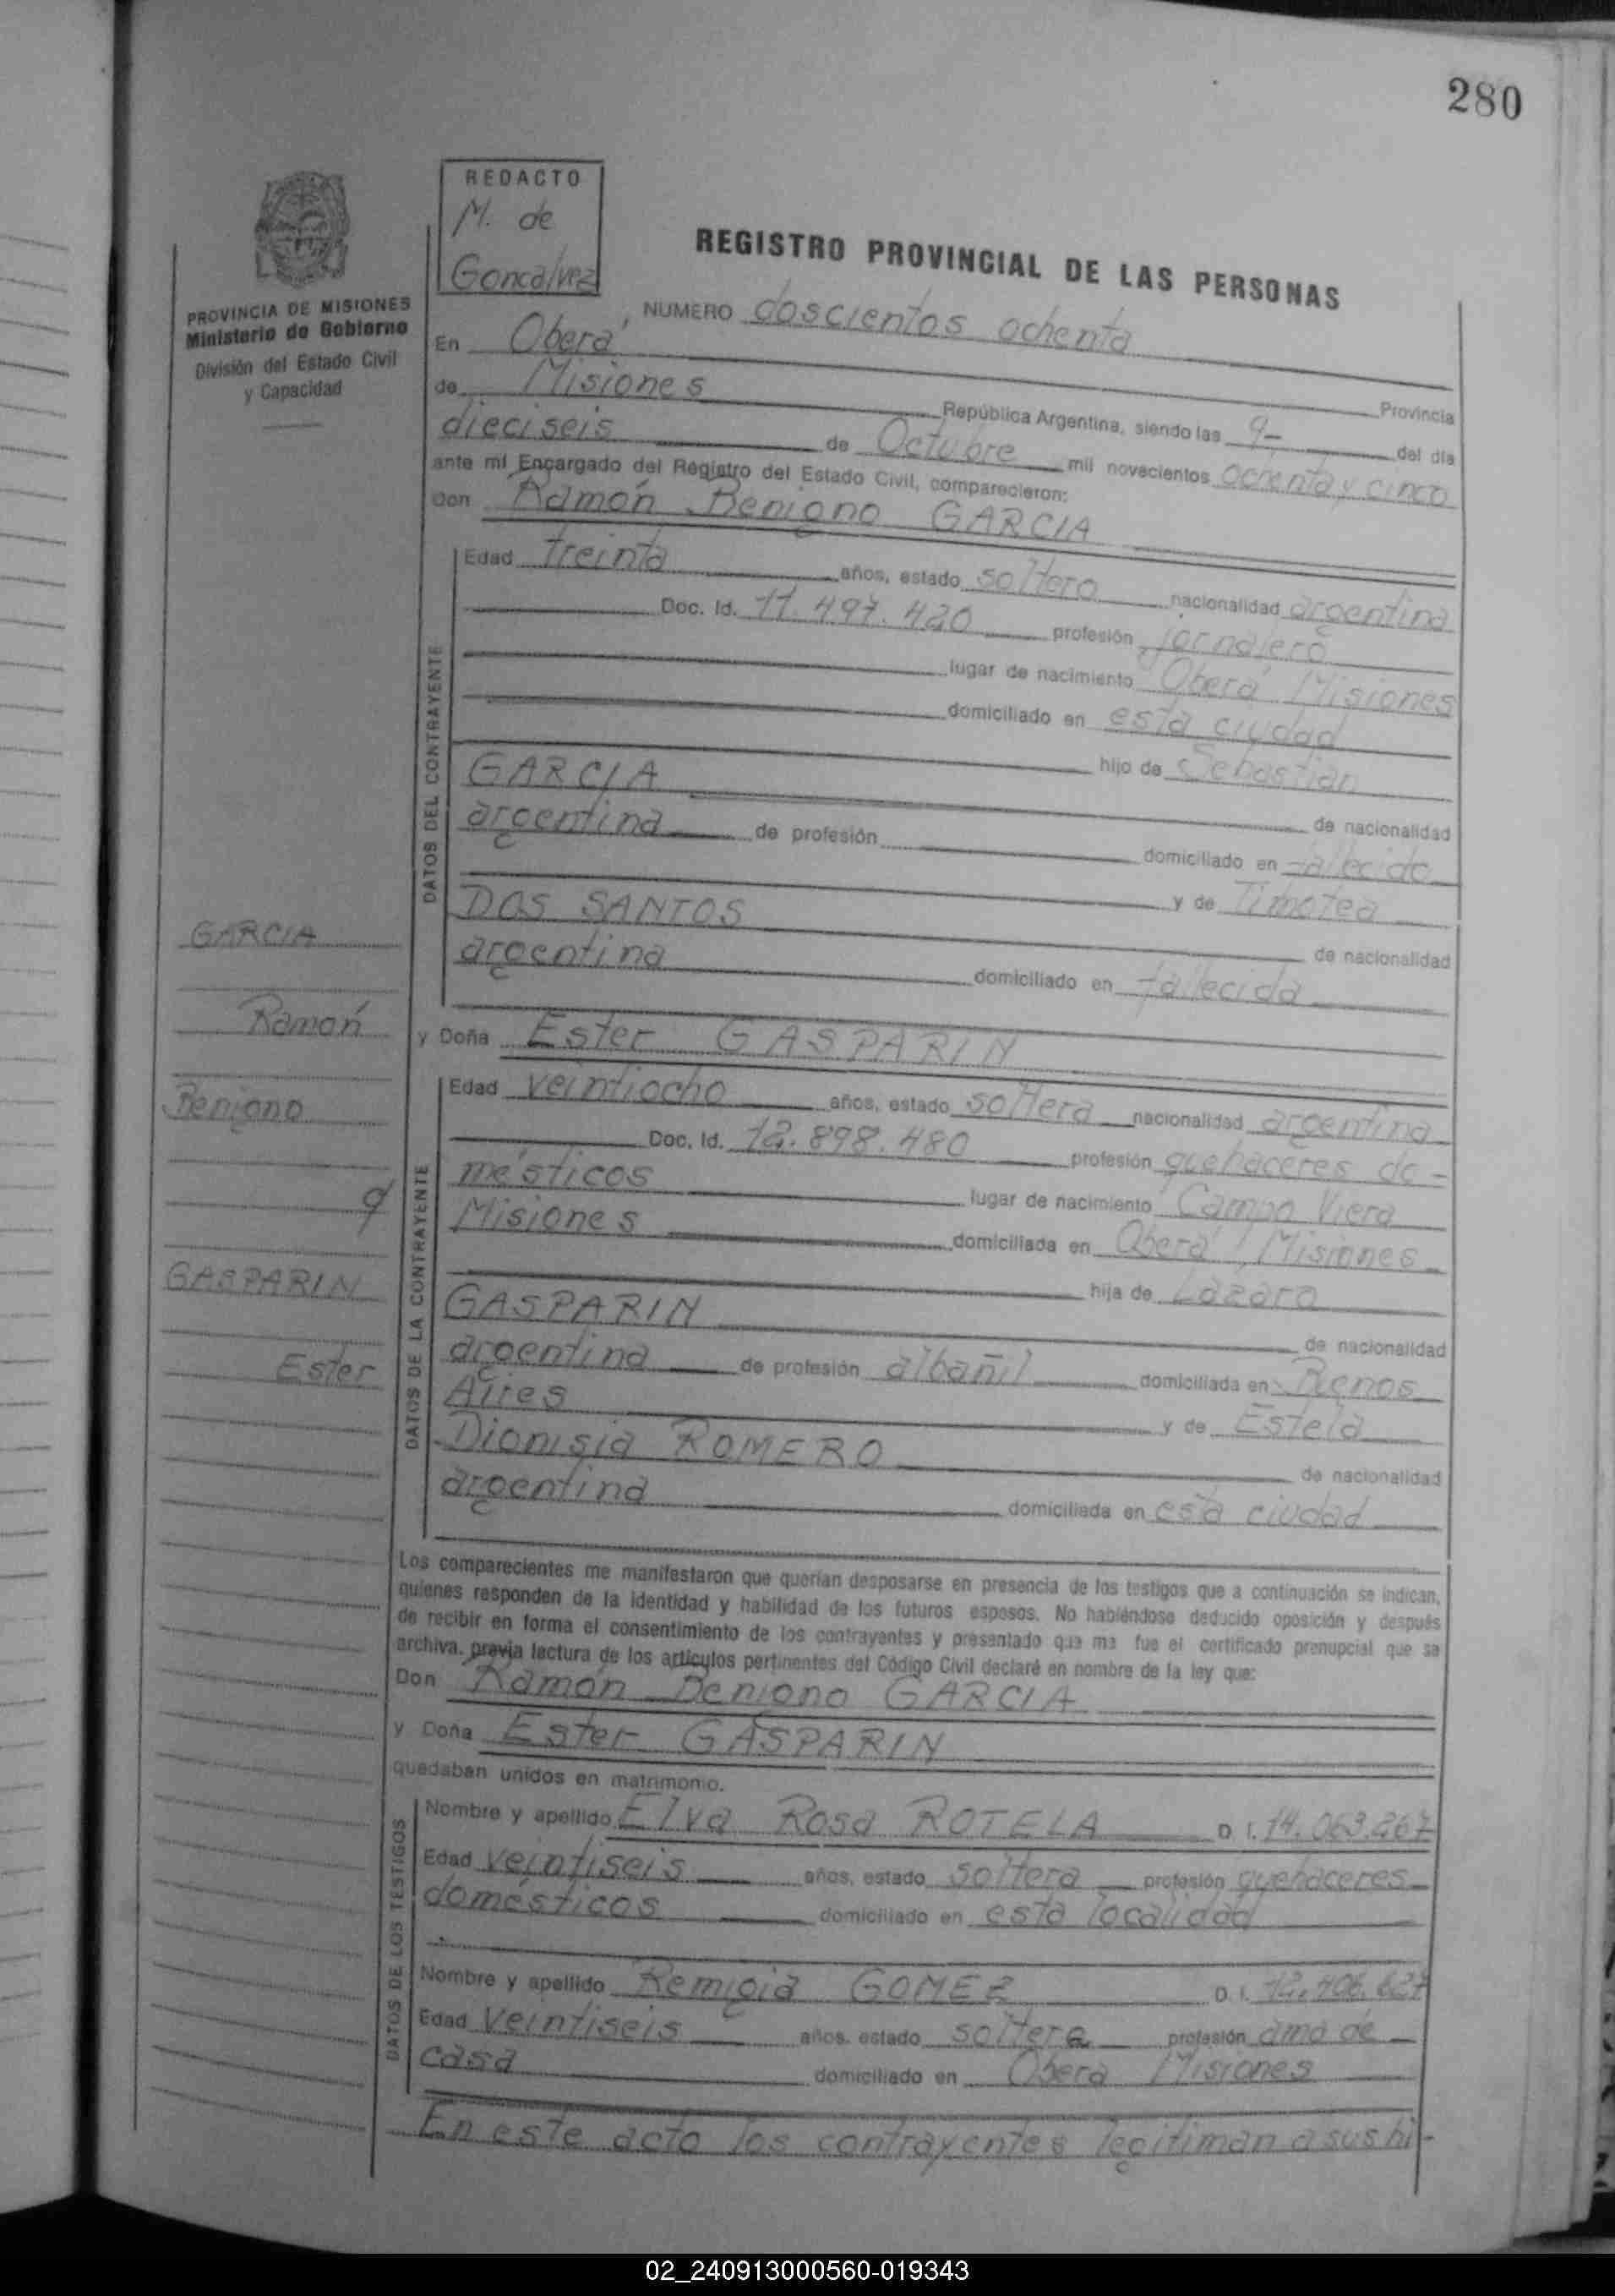 280
REDACTO
M. de
Goncalvez
PROVINCIA DE MISIONES
Ministerio de Gobierno
División del Estado Civil
y Capacidad
REGISTRO PROVINCIAL DE LAS PERSONAS
NUMERO doscientos ochenta
En Oberá Provincia
de Misiones República Argentina, siendo las 9- del día
dieciseis de Octubre mil novecientos ochenta y cinco
ante mí Encargado del Registro del Estado Civil, comparecieron:
Don Ramón Benigno GARCIA
DATOS DEL CONTRAYENTE
Edad treinta años, estado soltero nacionalidad argentina
Doc. Id. 11.497.420 profesión jornalero
lugar de nacimiento Oberá Misiones
domiciliado en esta ciudad
hijo de Sebastian
GARCIA de nacionalidad
argentina de profesión domiciliado en fallecido
y de Timotea
DOS SANTOS de nacionalidad
argentina domiciliado en fallecida
y Doña Ester GASPARIN
DATOS DE LA CONTRAYENTE
Edad veintiocho años, estado soltera nacionalidad argentina
Doc. Id. 12.898.480 profesión quehaceres do-
mésticos lugar de nacimiento Campo Viera
Misiones domiciliada en Oberá Misiones
hija de Lazaro
GASPARIN de nacionalidad
argentina de profesión albañil domiciliada en Buenos
Aires y de Estela
Dionisia ROMERO de nacionalidad
argentina domiciliada en esta ciudad
GARCIA
Ramón
Benigno
GASPARIN
Ester
Los comparecientes me manifestaron que querían desposarse en presencia de los testigos que a continuación se indican,
quienes responden de la identidad y habilidad de los futuros esposos. No habiéndose deducido oposición y después
de recibir en forma el consentimiento de los contrayentes y presentado que me fue el certificado prenupcial que se
archiva, previa lectura de los artículos pertinentes del Código Civil declaré en nombre de la ley que:
Don Ramón Benigno GARCIA
y Doña Ester GASPARIN
quedaban unidos en matrimonio.
DATOS DE LOS TESTIGOS
Nombre y apellido Elva Rosa ROTELA D. I. 14.063.267
Edad veintiseis años, estado soltera profesión quehaceres
domésticos domiciliado en esta localidad
Nombre y apellido Remigia GOMEZ D. I. 12.706.627
Edad veintiseis años, estado soltera profesión ama de
casa domiciliado en Oberá Misiones
En este acto los contrayentes legitiman a sus hi-
02_240913000560-019343